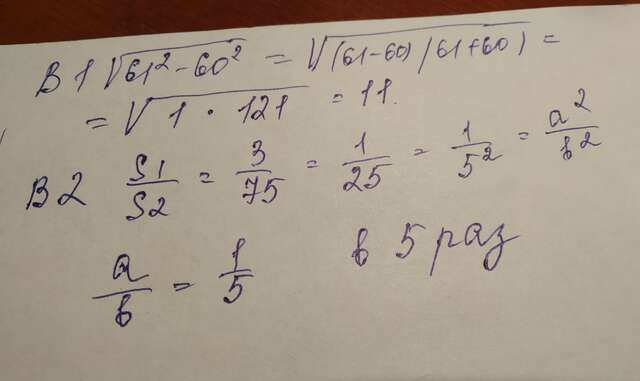 В 1 √(61² - 60²) = √((61-60)(61+60)) =
= √(1 · 121) = 11.
В 2 S1/S2 = 3/75 = 1/25 = 1/5² = a²/b²
a/b = 1/5 в 5 раз